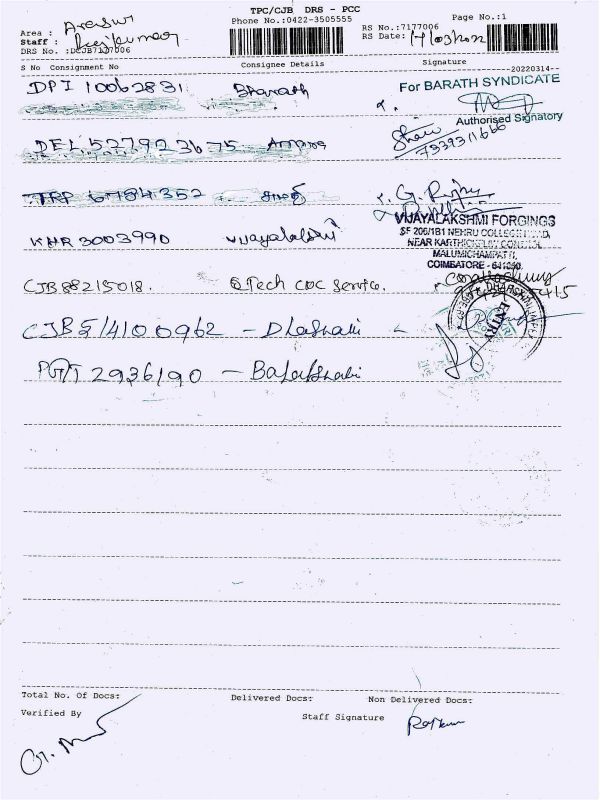 TPC/CJB DRS - PCC
Phone No.:0422-3505555
Page No.:1
Area : Arasur
RS No.:7177006
Staff : Rajkumar
RS Date: 14/03/2022
DRS No. :DCJB7177006
S No Consignment No Consignee Details Signature
--20220314--
DPI 10062831 Bharath
For BARATH SYNDICATE
Authorised Signatory
DEL 527923675
7339311666
TRP 6784352
VIJAYALAKSHMI FORGINGS
SF 206/1B1 NEHRU COLLEGE ROAD,
KHR 3003990 Vijayalakshmi
MALUMICHAMPATTI,
COIMBATORE - 641050.
CJB 88215018. QTech CDC Service.
ENTRY
CJB 514100962 - Dhashani
PGT 2936190 -
Total No. Of Docs: Delivered Docs: Non Delivered Docs:
Verified By Staff Signature